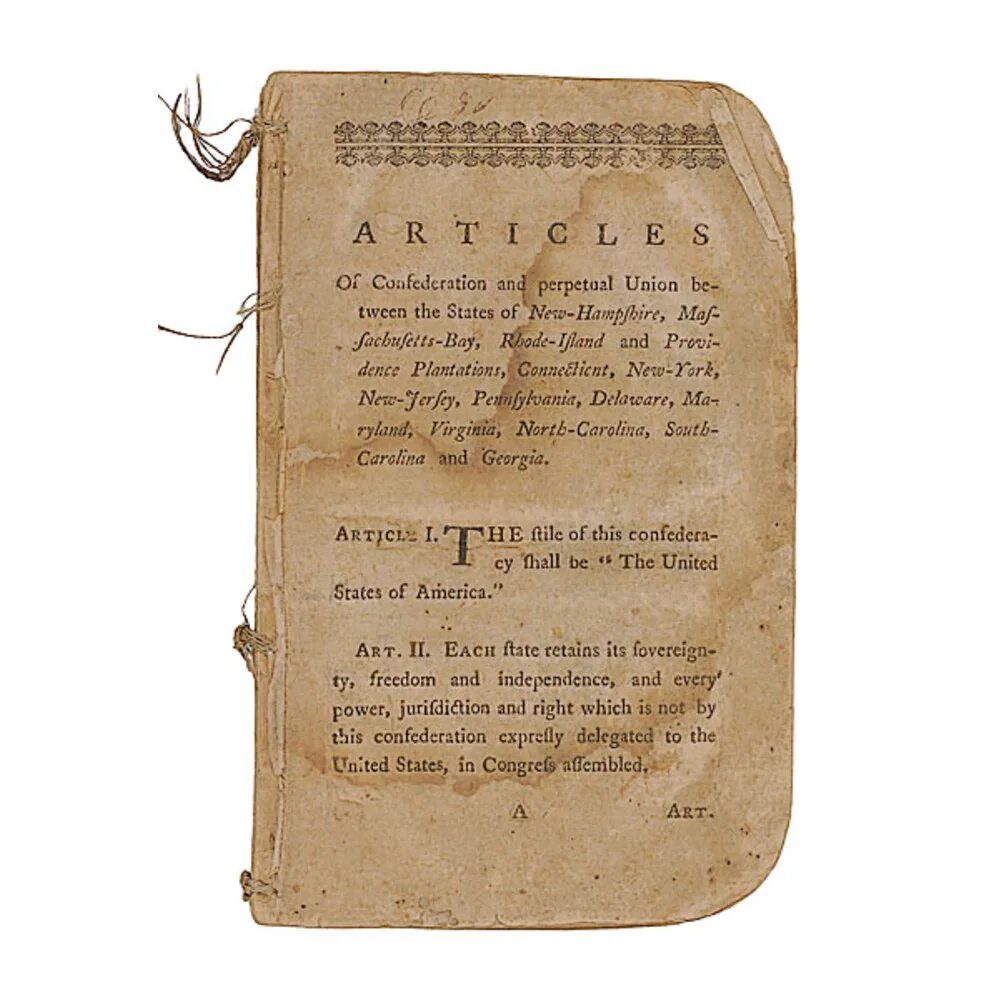 ARTICLES
Of Confederation and perpetual Union be-
tween the States of New-Hampſhire, Maſ-
ſachuſetts-Bay, Rhode-Iſland and Provi-
dence Plantations, Connecticut, New-York,
New-Jerſey, Pennſylvania, Delaware, Ma-
ryland, Virginia, North-Carolina, South-
Carolina and Georgia.
ARTICLE I. THE ſtile of this confedera-
cy ſhall be “ The United
States of America.”
ART. II. EACH ſtate retains its ſovereign-
ty, freedom and independence, and every
power, juriſdiction and right which is not by
this confederation expreſly delegated to the
United States, in Congreſs aſſembled.
A ART.